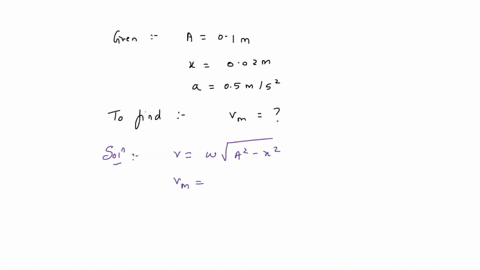 Given :- A = 0.1 m
x = 0.02 m
a = 0.5 m/s²
To find :- vₘ = ?
Solⁿ :- v = ω√(A² - x²)
vₘ =